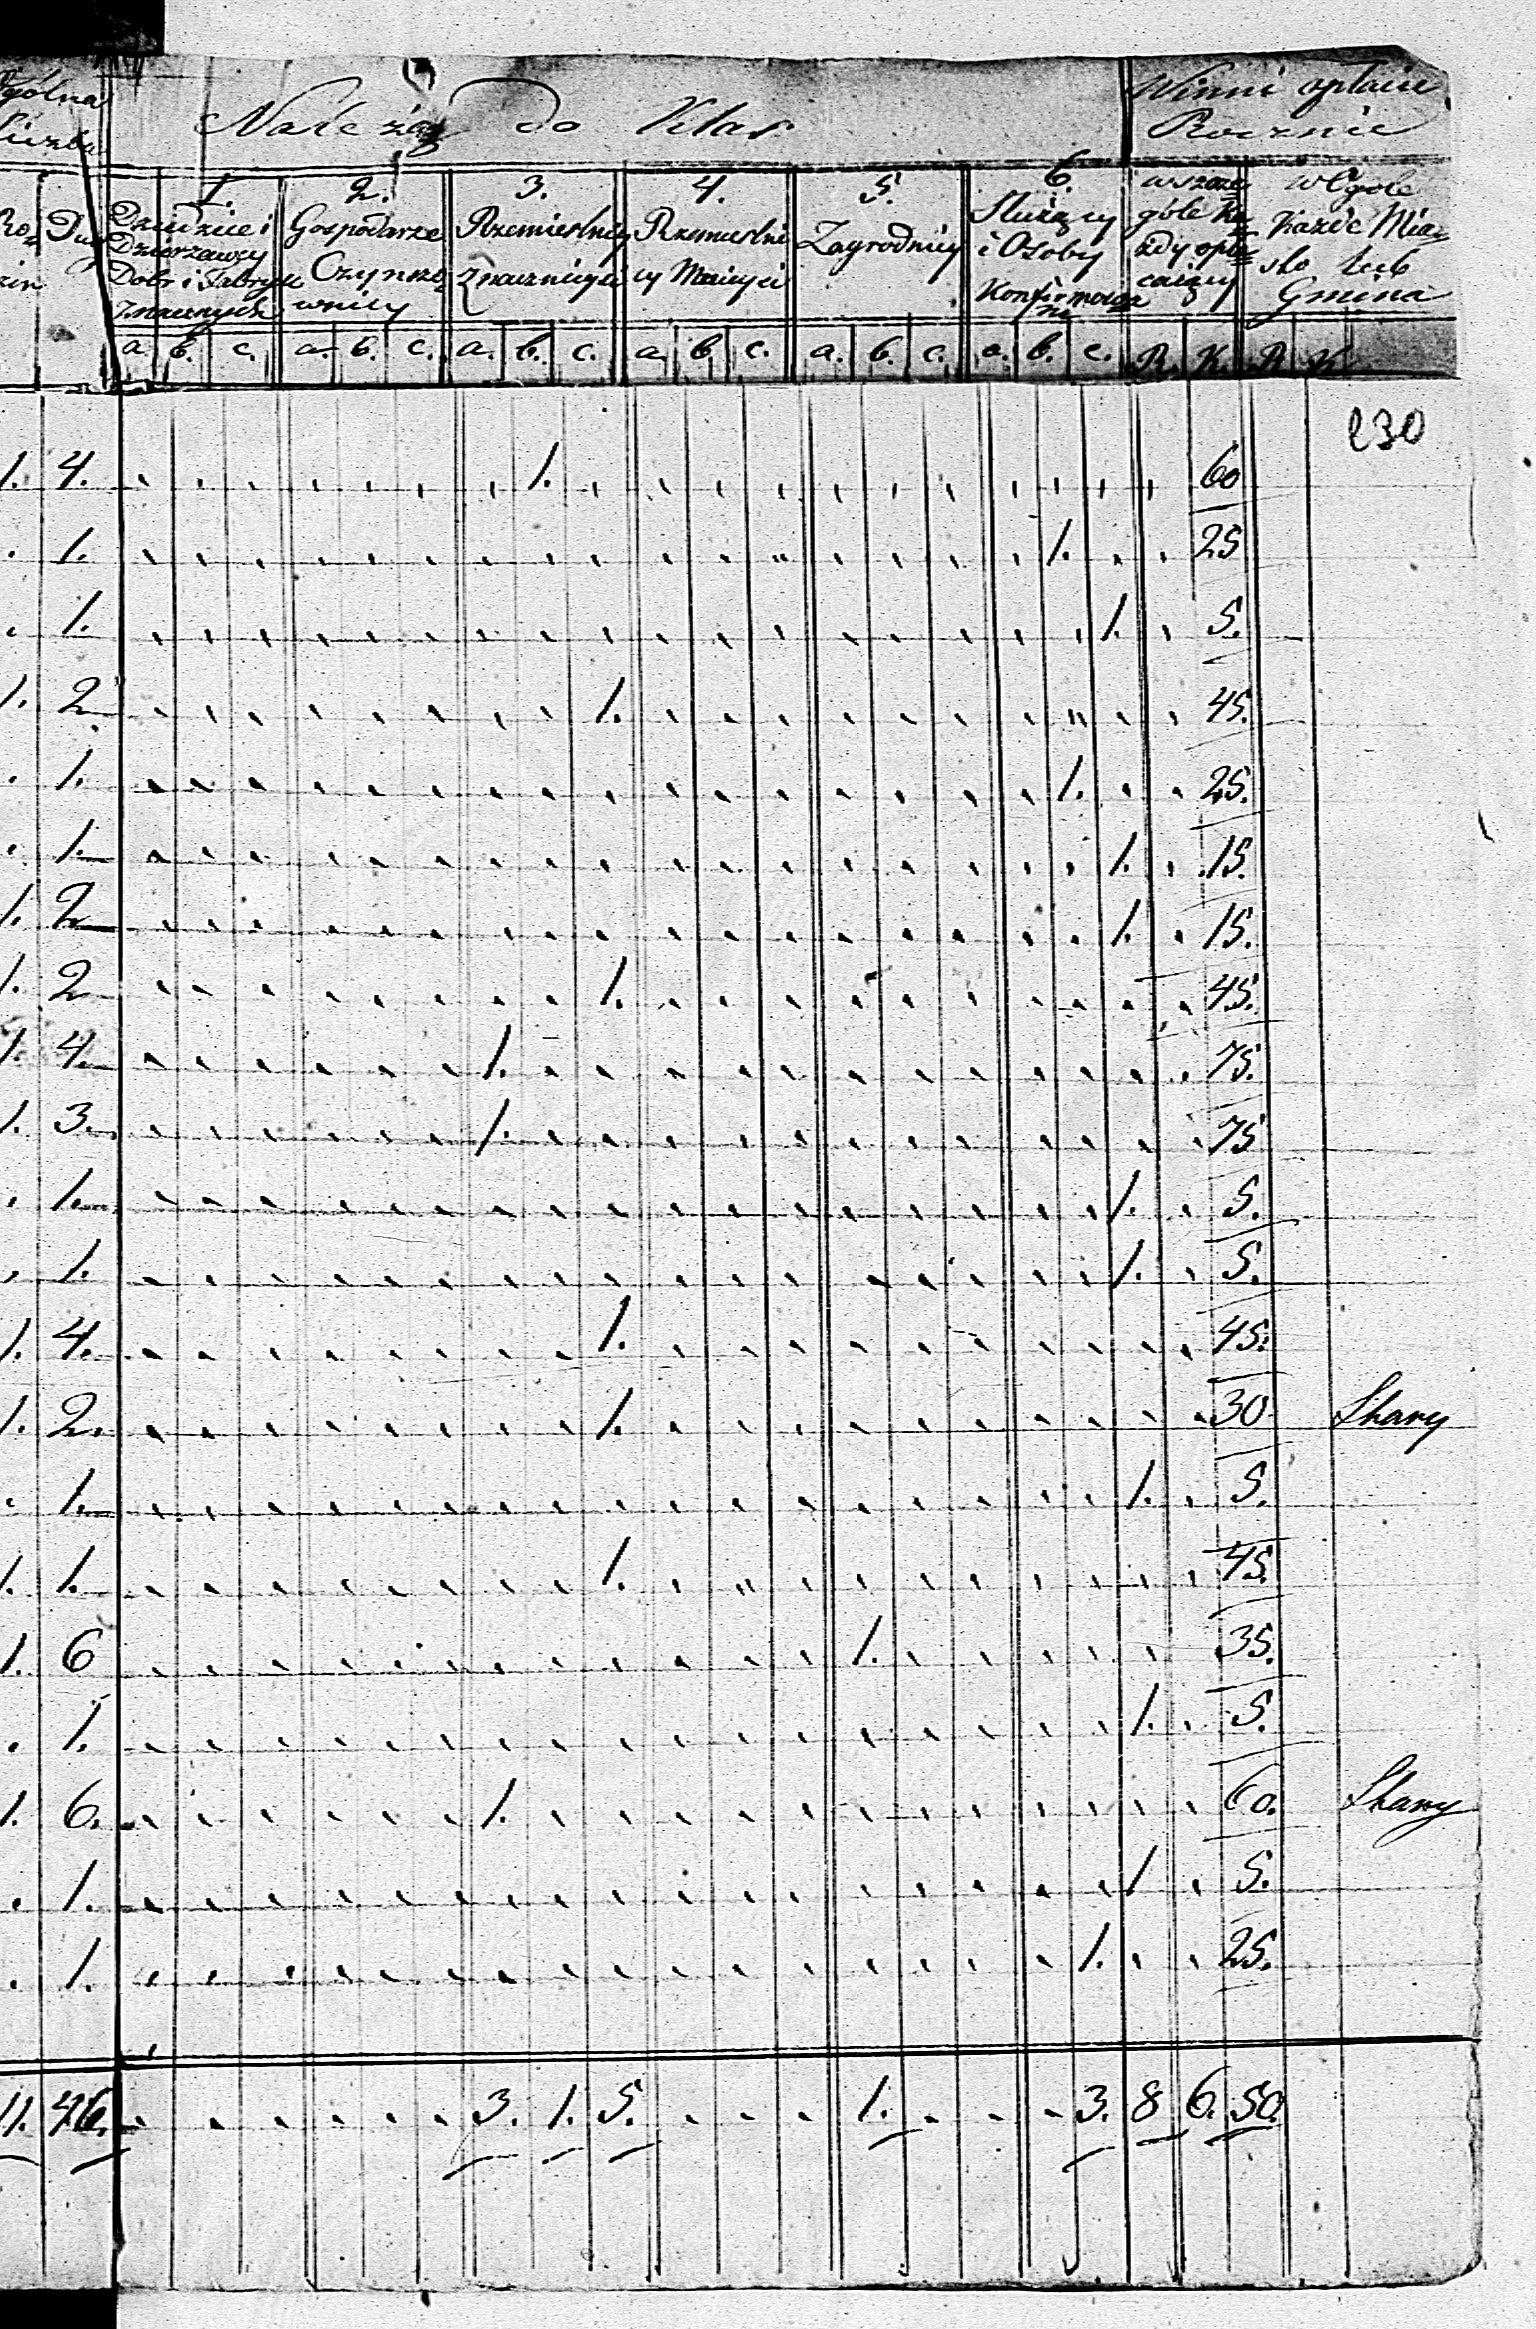 Ogólna Należą do Klas Winni opłacić
Liczba Rocznie
1. 2. 3. 4. 5. 6. w szcze w Ogóle
Dusz Dziedzice i Gospodarze Rzemieślnicy Rzemieślni Zagrodnicy Służący góle Ka każde Mia
Dzierżawcy Czynszo znaczniejsi cy Mniejsi i Osoby żdy opła sto lub
Dobr i Fabryk wnicy Konfirmowa cający Gmina
znacznych ne
a b. c. a. b. c. a. b. c. a. b. c. a. b. c. a. b. c. R. K. R. K.
230
1. 4. 1. 60
1. 1. 25
1. 1. 5.
1. 2 1. 45.
1. 1. 25.
1. 1. 15.
1. 2 1. 15.
1. 2 1. 45.
1. 4. 1. 75.
1. 3. 1. 75
1. 1. 5.
1. 1. 5.
1. 4. 1. 45.
1. 2. 1. 30
1. 1. 5.
1. 1. 1. 45.
1. 6 1. 35.
1. 1. 5.
1. 6. 1. 60.
1. 1 5.
1. 1. 25.
11. 46. 3. 1. 5. 1. 3. 8 6. 50.